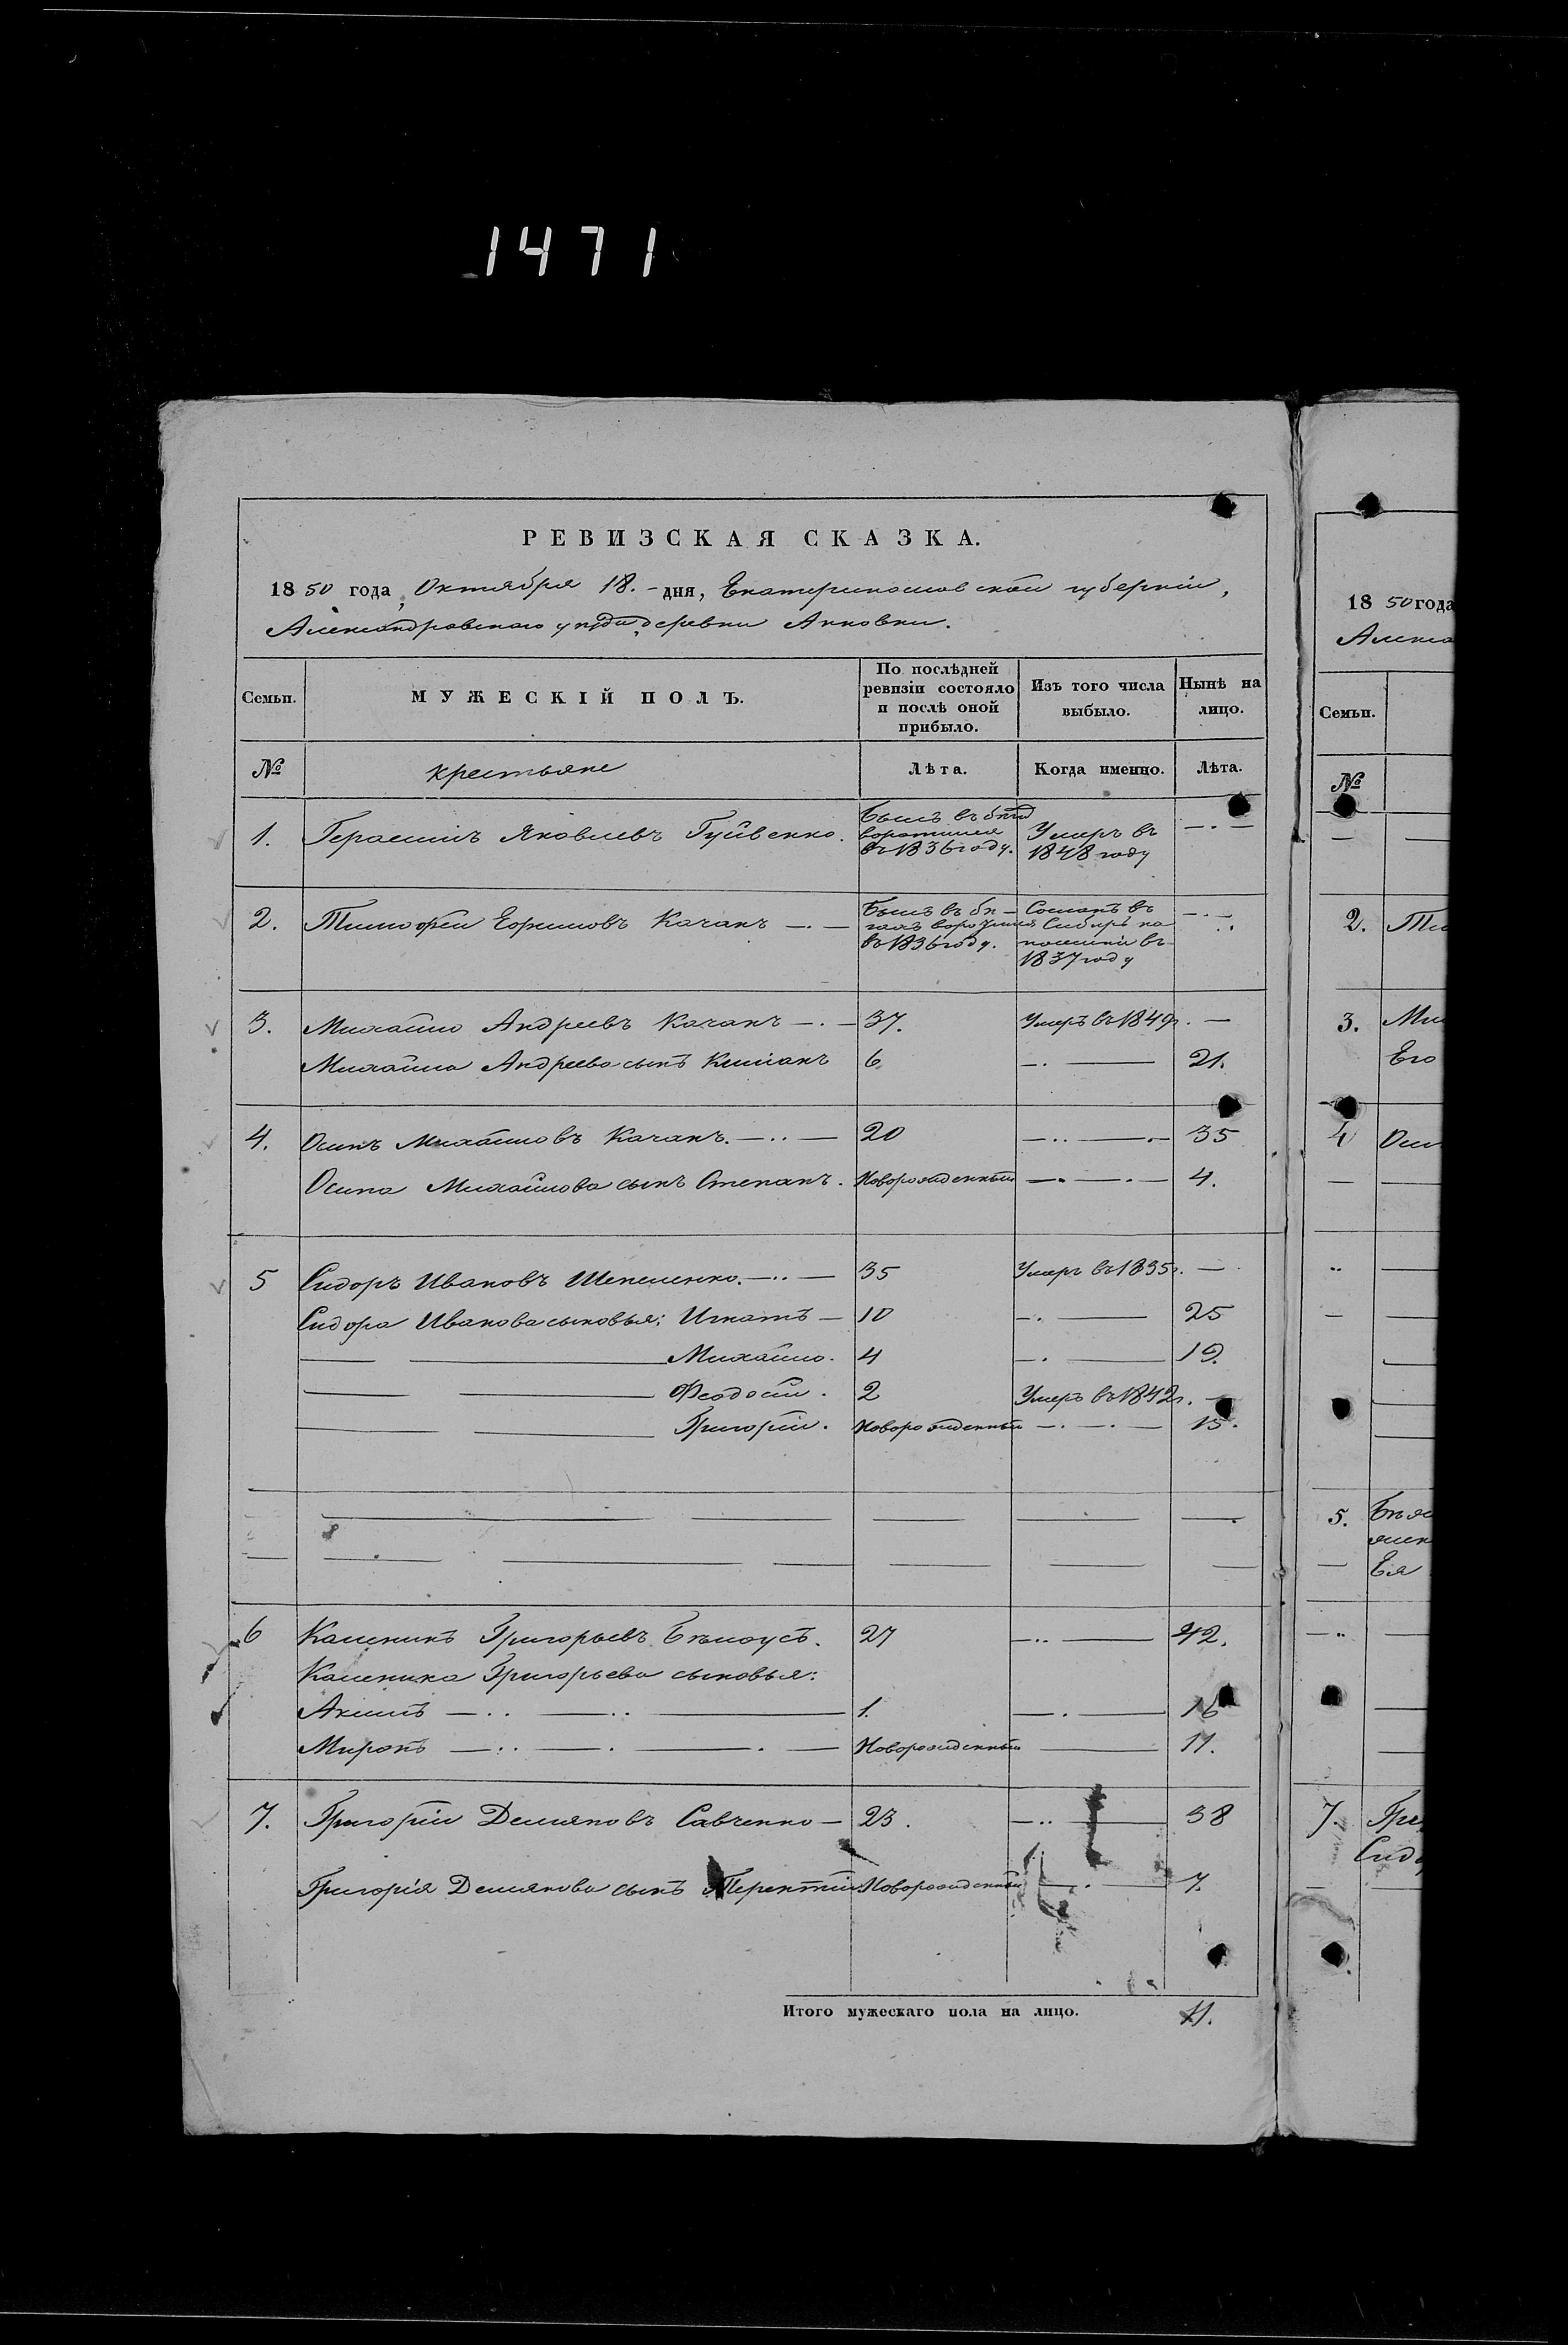 1471
РЕВИЗСКАЯ СКАЗКА.
1850 года, Октября 18.-дня, Екатеринославской губерніи,
Александровскаго уѣзда, деревни Анновки.
Семьи.
МУЖЕСКІЙ ПОЛЪ.
По послѣдней ревизіи состояло и послѣ оной прибыло.
Изъ того числа выбыло.
Нынѣ на лицо.
№ крестьяне Лѣта. Когда именно. Лѣта.
1. Герасимъ Яковлевъ Гуйвенко. Былъ въ бѣгахъ воротился въ 1836 году. Умеръ въ 1848 году —.—
2. Тимофей Ефимовъ Качанъ —.— Былъ въ бѣгахъ воротился въ 1836 году. Сосланъ въ Сибирь на поселеніе въ 1837 году —.—
3. Михайло Андреевъ Качанъ —.— 37. Умеръ въ 1849г. —
Михайла Андреева сынъ 6 —.— 21.
4. Осипъ Михайловъ Качанъ.—..— 20 —..—.— 35
Осипа Михайлова сынъ Степанъ. Новорожденный —.—.— 4.
5 Сидоръ Ивановъ Шепеленко.—..— 35 Умеръ въ 1835г. —
Сидора Иванова сыновья: Игнатъ — 10 —.— 25
— — Михайло. 4 —.— 19.
— — Феодосій. 2 Умеръ въ 1842г. —
— — Григорій. Новорожденный —.—.— 15.
6 Каленикъ Григорьевъ Бѣлоусъ. 27 —..— 42.
Каленика Григорьева сыновья:
Акимъ —..—..— 1. —.— 16
Миронъ —..—.—.— Новорожденный — 11.
7. Григорій Демяновъ Савченко — 23. —..— 38
Григорія Демянова сынъ Терентій Новорожденный —.— 7.
Итого мужескаго пола на лицо. 11.
1850 года
Алекса
Семьи.
№
2. Ти
3. Ми
Его
4 Оси
5.
Ея
7. Гри
Сидо